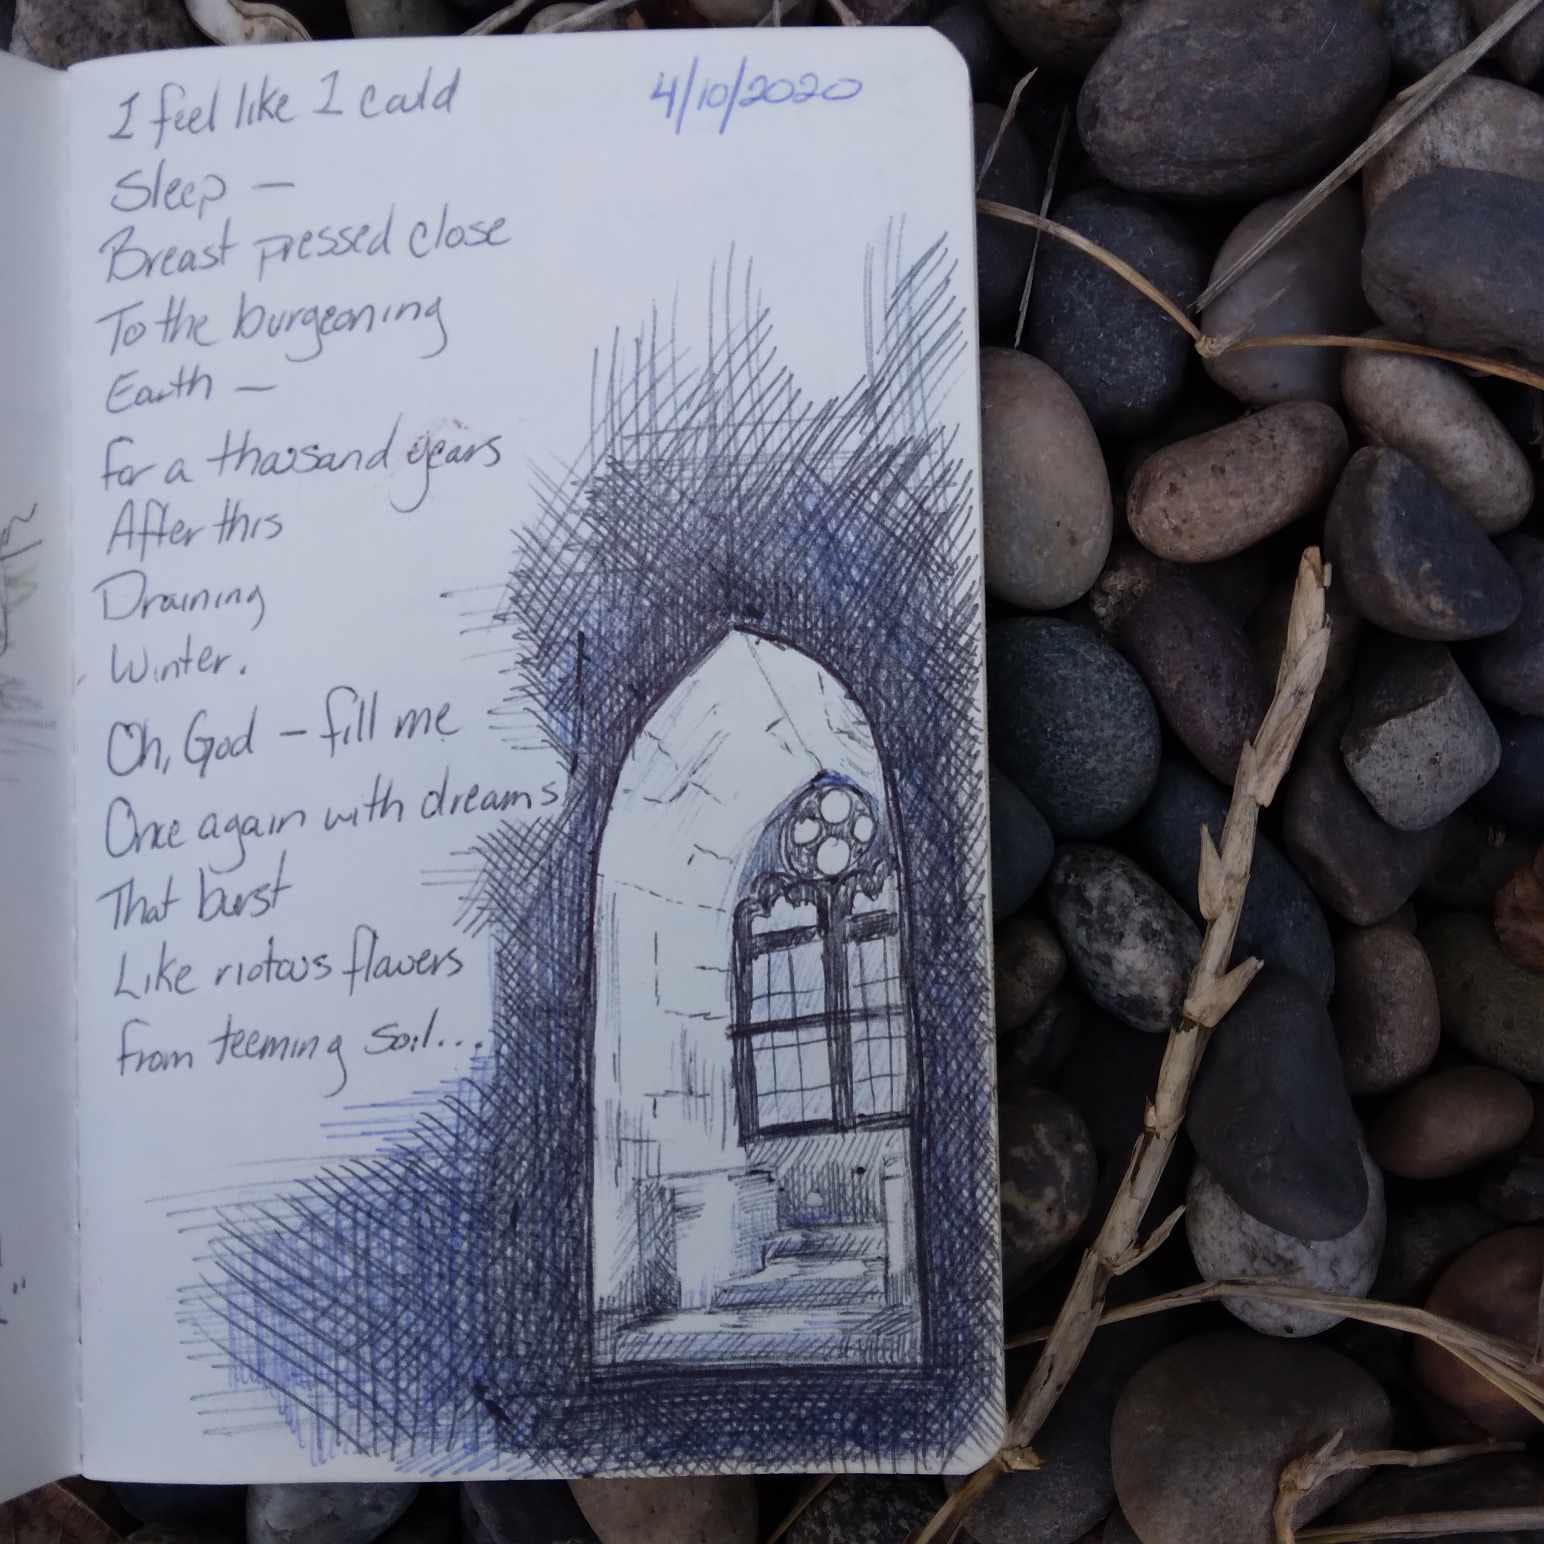 4/10/2020
I feel like I could
Sleep —
Breast pressed close
To the burgeoning
Earth —
for a thousand years
After this
Draining
Winter.
Oh, God — fill me
Once again with dreams
That burst
Like riotous flowers
from teeming soil...